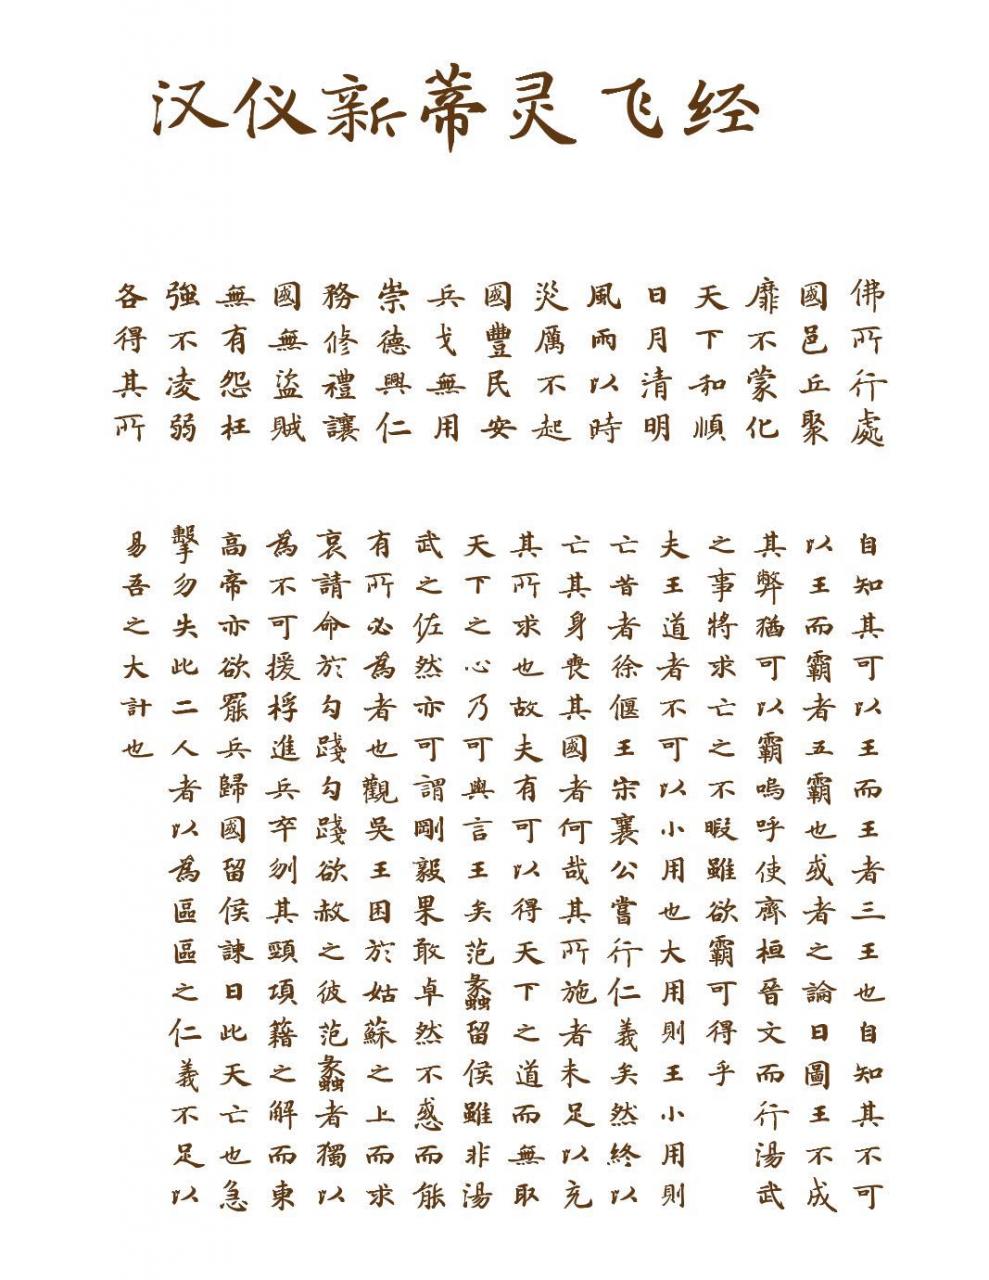 汉仪新蒂灵飞经
佛所行處
國邑丘聚
靡不蒙化
天下和順
日月清明
風雨以時
災厲不起
國豐民安
兵戈無用
崇德興仁
務修禮讓
國無盜賊
無有怨枉
強不凌弱
各得其所
自知其可以王而王者三王也自知其不可
以王而霸者五霸也或者之論曰圖王不成
其弊猶可以霸嗚呼使齊桓晉文而行湯武
之事將求亡之不暇雖欲霸可得乎
夫王道者不可以小用也大用則王小用則
亡昔者徐偃王宋襄公嘗行仁義矣然終以
亡其身喪其國者何哉其所施者未足以充
其所求也故夫有可以得天下之道而無取
天下之心乃可與言王矣范蠡留侯雖非湯
武之佐然亦可謂剛毅果敢卓然不惑而能
有所必為者也觀吳王困於姑蘇之上而求
哀請命於勾踐勾踐欲赦之彼范蠡者獨以
為不可援桴進兵卒刎其頸項籍之解而東
高帝亦欲罷兵歸國留侯諫曰此天亡也急
擊勿失此二人者以為區區之仁義不足以
易吾之大計也